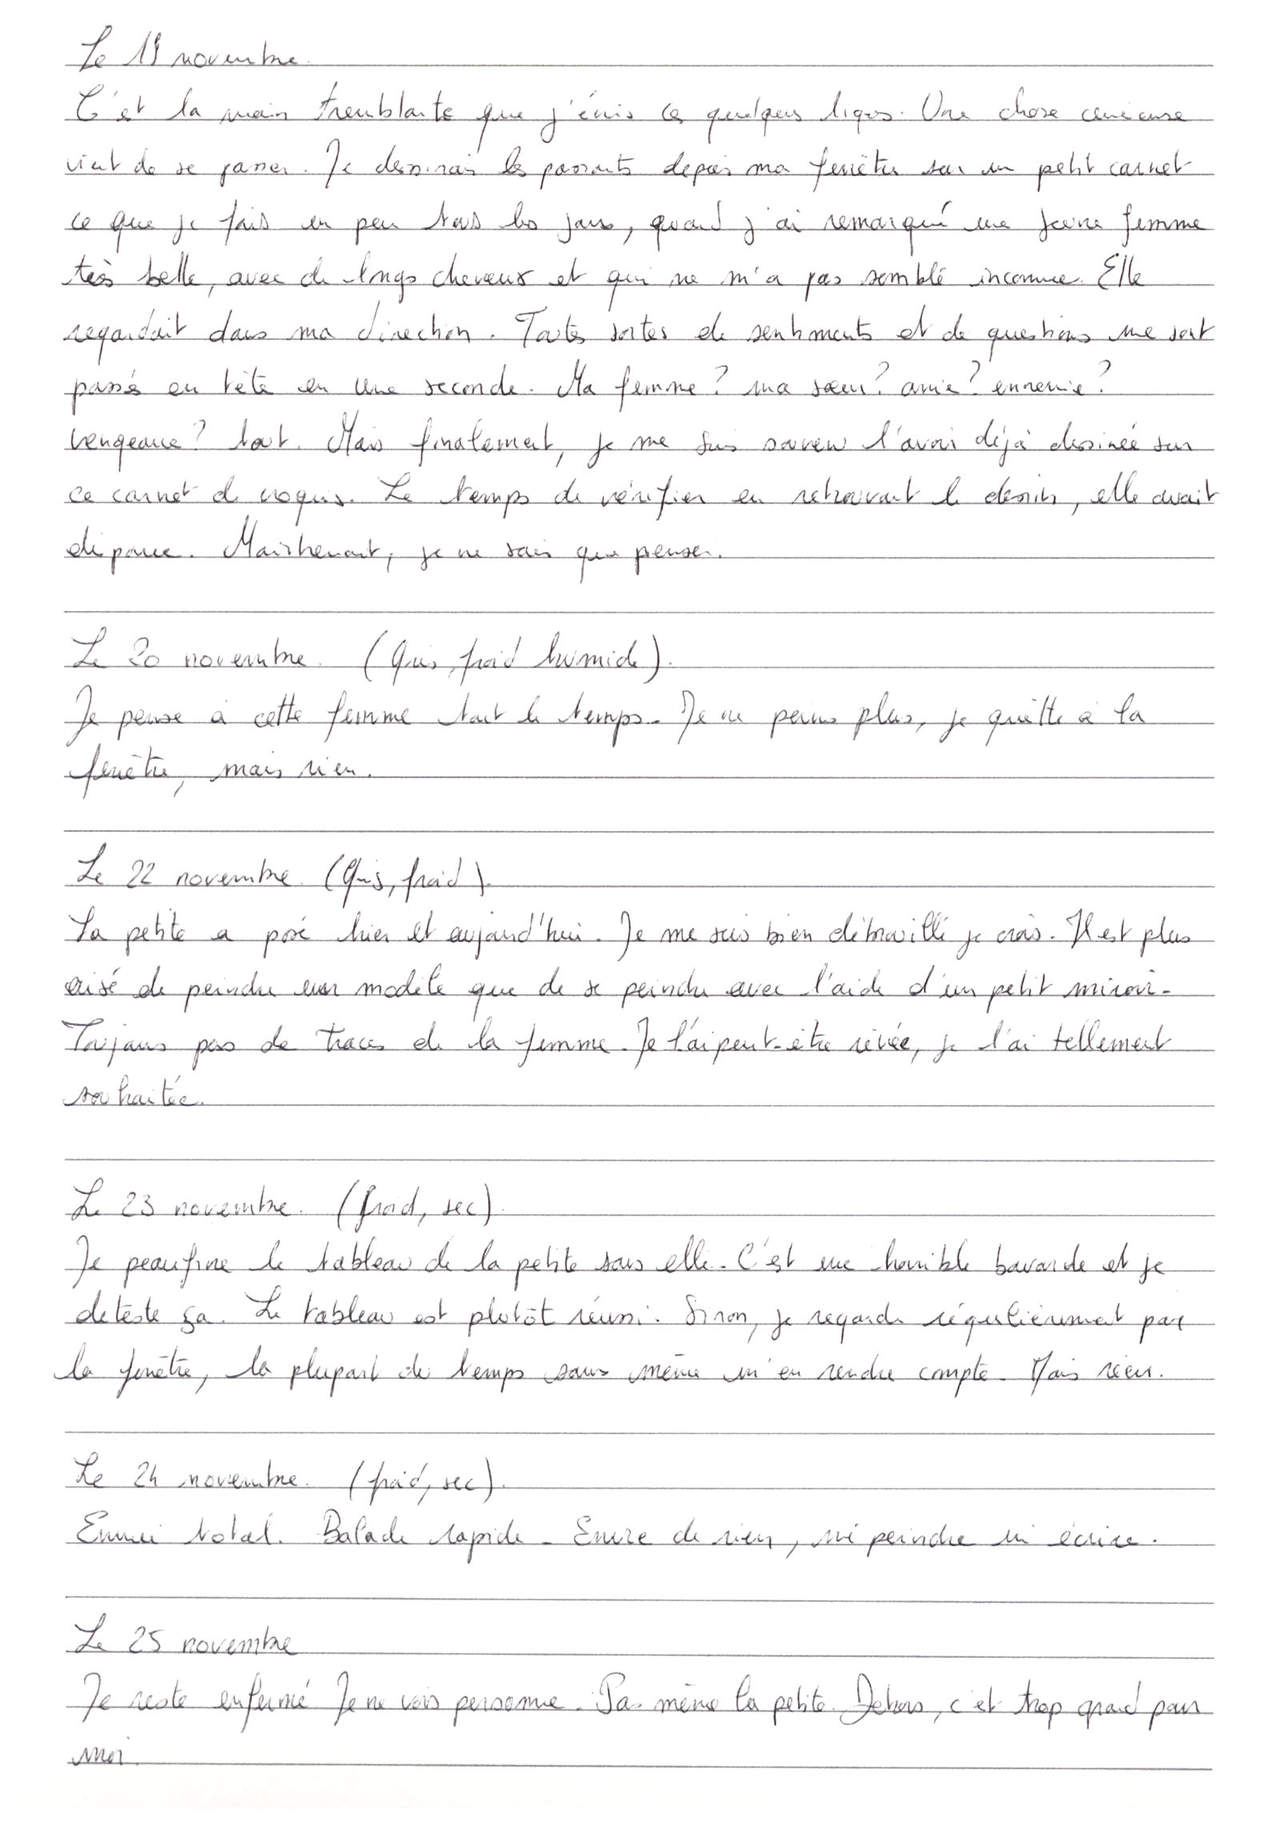 Le 19 novembre.
C'est la main tremblante que j'écris ces quelques lignes. Une chose curieuse
vient de se passer. Je dessinais les passants depuis ma fenêtre sur un petit carnet
ce que je fais un peu tous les jours, quand j'ai remarqué une jeune femme
très belle, avec de longs cheveux et qui ne m'a pas semblé inconnue. Elle
regardait dans ma direction. Toutes sortes de sentiments et de questions me sont
passés en tête en une seconde. Ma femme ? ma sœur ? amie ? ennemie ?
vengeance ? tout. Mais finalement, je me suis souvenu l'avoir déjà dessinée sur
ce carnet de croquis. Le temps de vérifier en retrouvant le dessin, elle avait
disparue. Maintenant, je ne sais que penser.
Le 20 novembre. (Gris, froid humide).
Je pense à cette femme tout le temps. Je ne peins plus, je guette à la
fenêtre, mais rien.
Le 22 novembre. (Gris, froid).
La petite a posé hier et aujourd'hui. Je me suis bien débrouillé je crois. Il est plus
aisé de peindre un modèle que de se peindre avec l'aide d'un petit miroir.
Toujours pas de traces de la femme. Je l'ai peut-être rêvée, je l'ai tellement
souhaitée.
Le 23 novembre. (froid, sec).
Je peaufine le tableau de la petite sans elle. C'est une horrible bavarde et je
déteste ça. Le tableau est plutôt réussi. Sinon, je regarde régulièrement par
la fenêtre, la plupart du temps sans même m'en rendre compte. Mais rien.
Le 24 novembre. (froid, sec).
Ennui total. Balade rapide. Envie de rien, ni peindre ni écrire.
Le 25 novembre
Je reste enfermé Je ne vois personne. Pas même la petite. Dehors, c'est trop grand pour
moi.